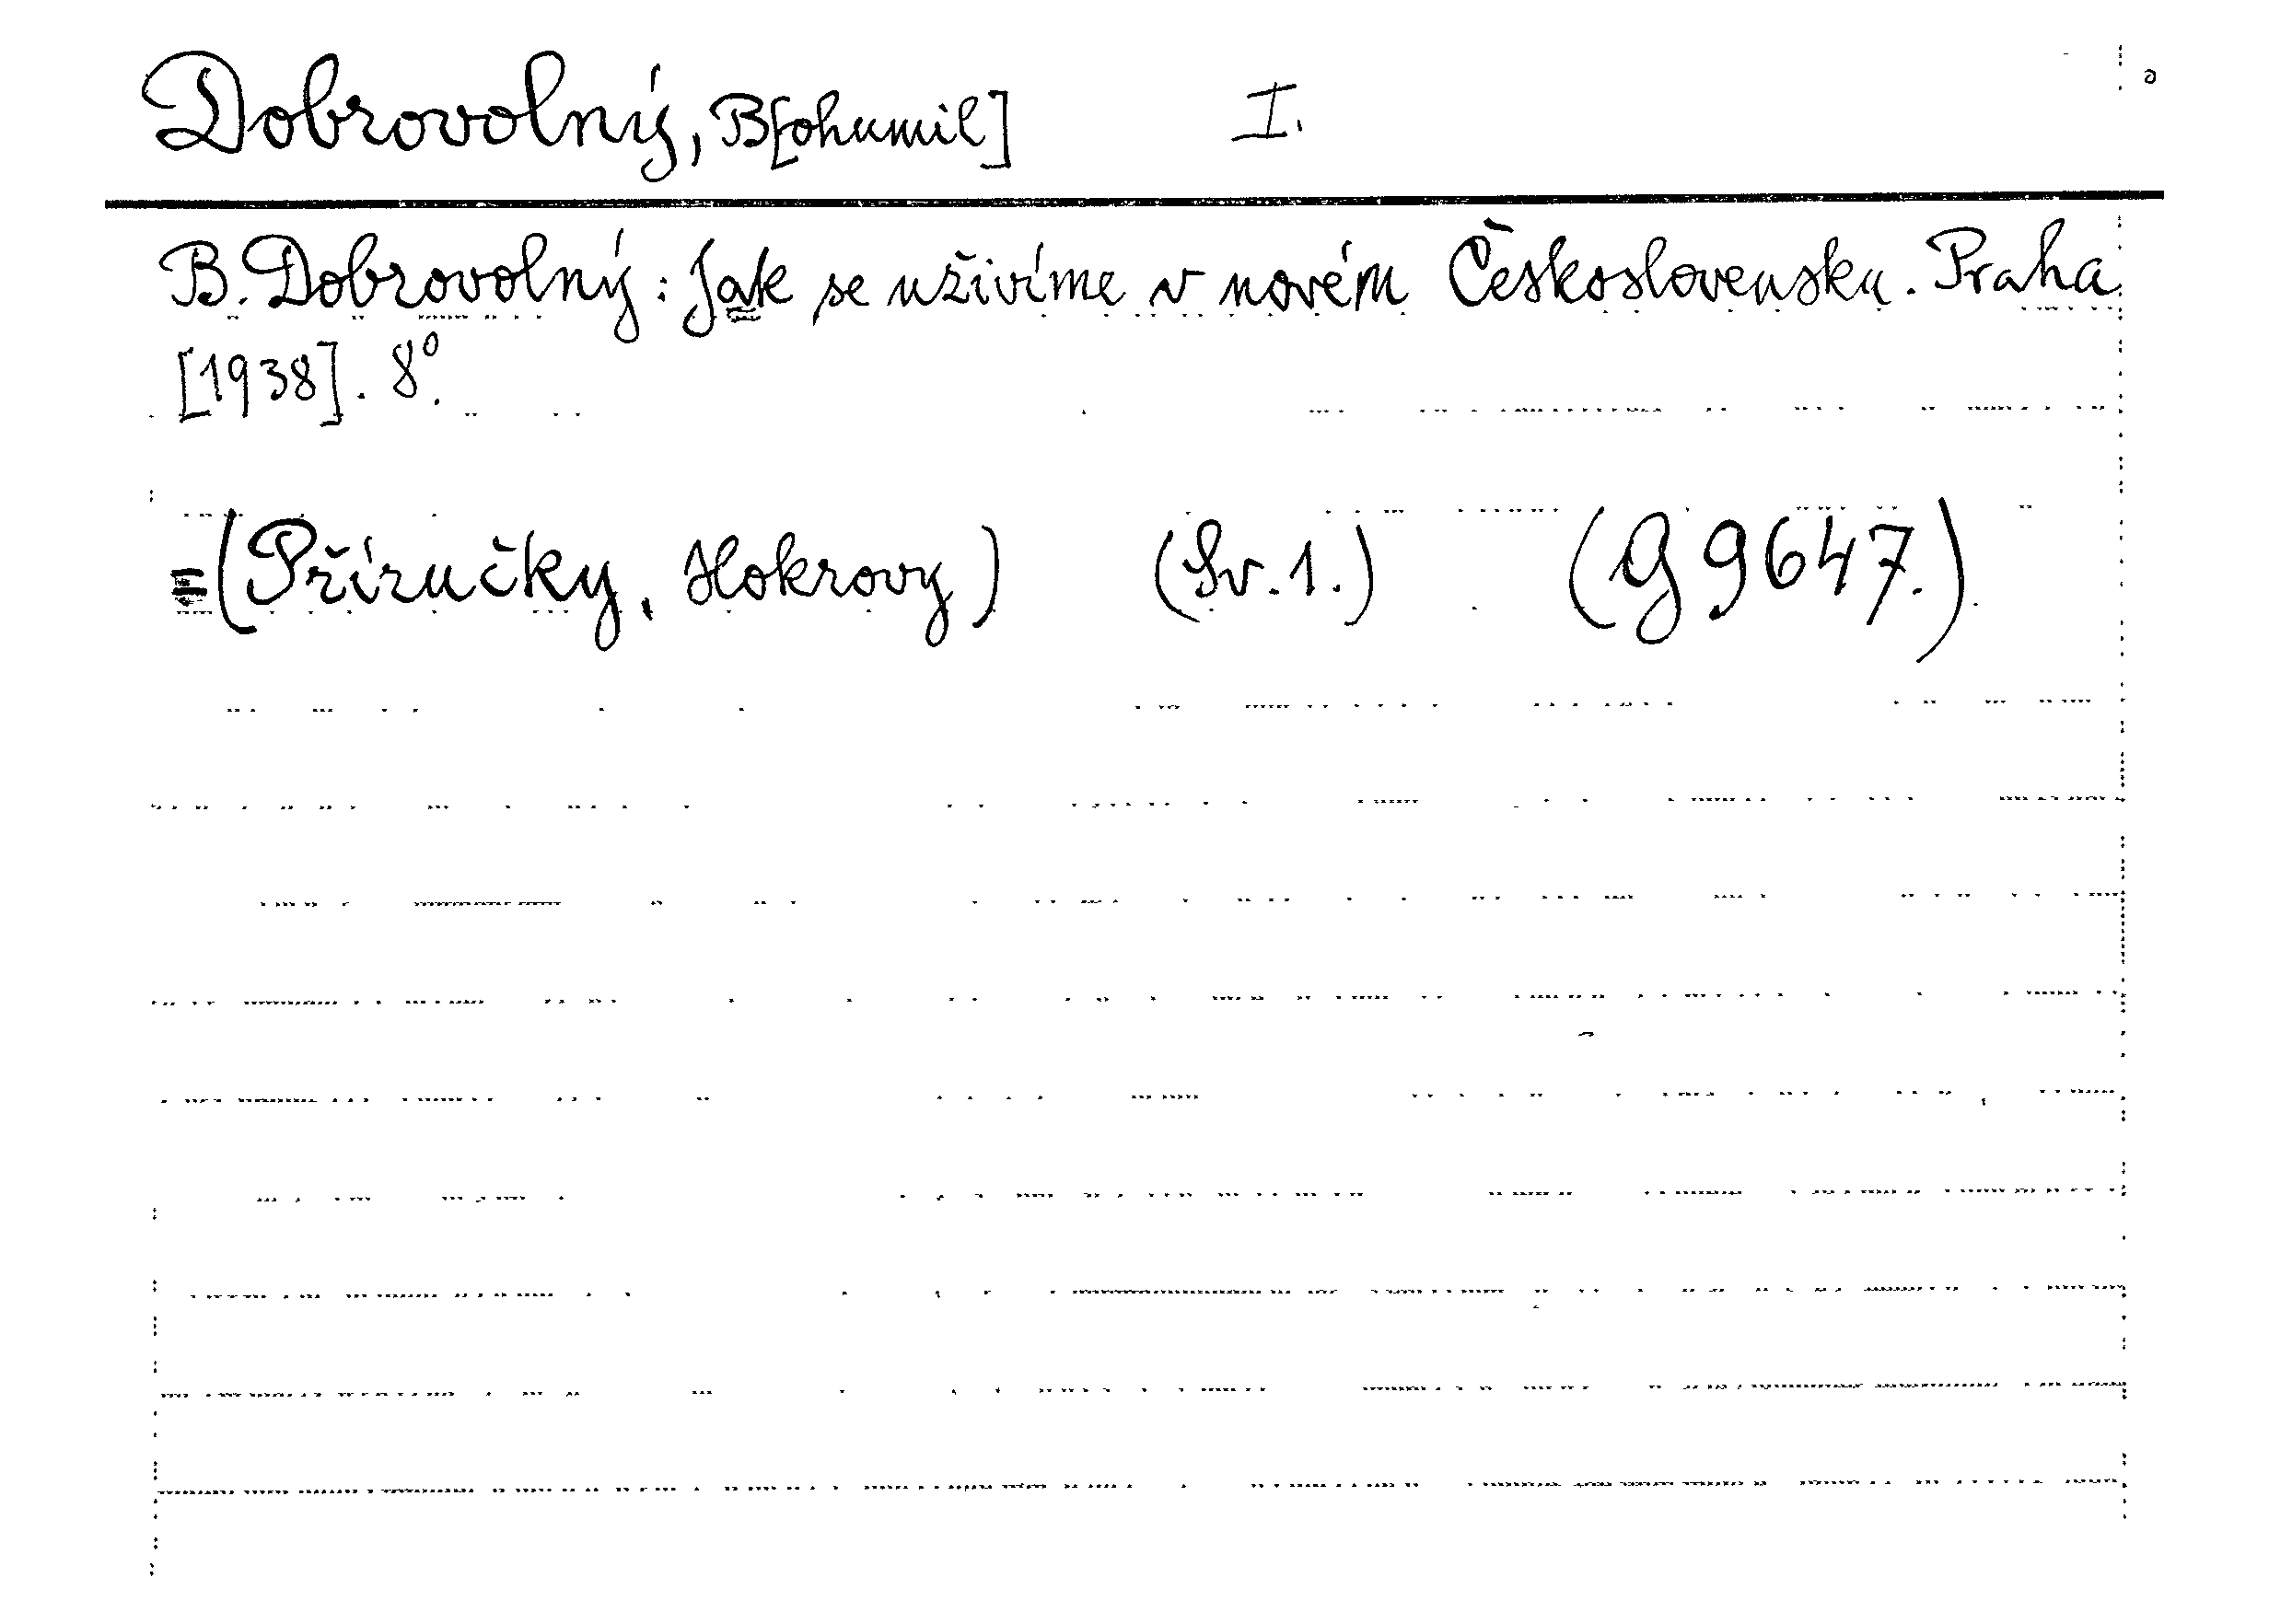 Dobrovolný, B[ohumil] I.
B. Dobrovolný: Jak se uživíme v novém Československu. Praha
[1938]. 8°.
=(Příručky, Hokrovy) (Sv. 1.) (G 9647.)